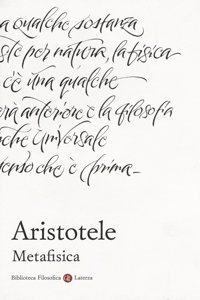 a qualche sostanza
s'è per natura, la fisica
c'è una qualche
erà anteriore e la filosofia
nche universale
senso che è prima
Aristotele
Metafisica
Biblioteca Filosofica Laterza